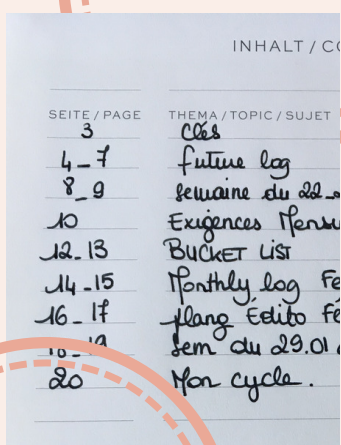 INHALT / CO
SEITE / PAGE THEMA / TOPIC / SUJET
3 Clés
4_7 future log
8_9 semaine du 22_
10 Exigences Mensu
12_13 BUCKET LIST
14_15 Monthly log Fe
16_17 plang Édito Fé
18_19 Sem du 29.01
20 Mon cycle.